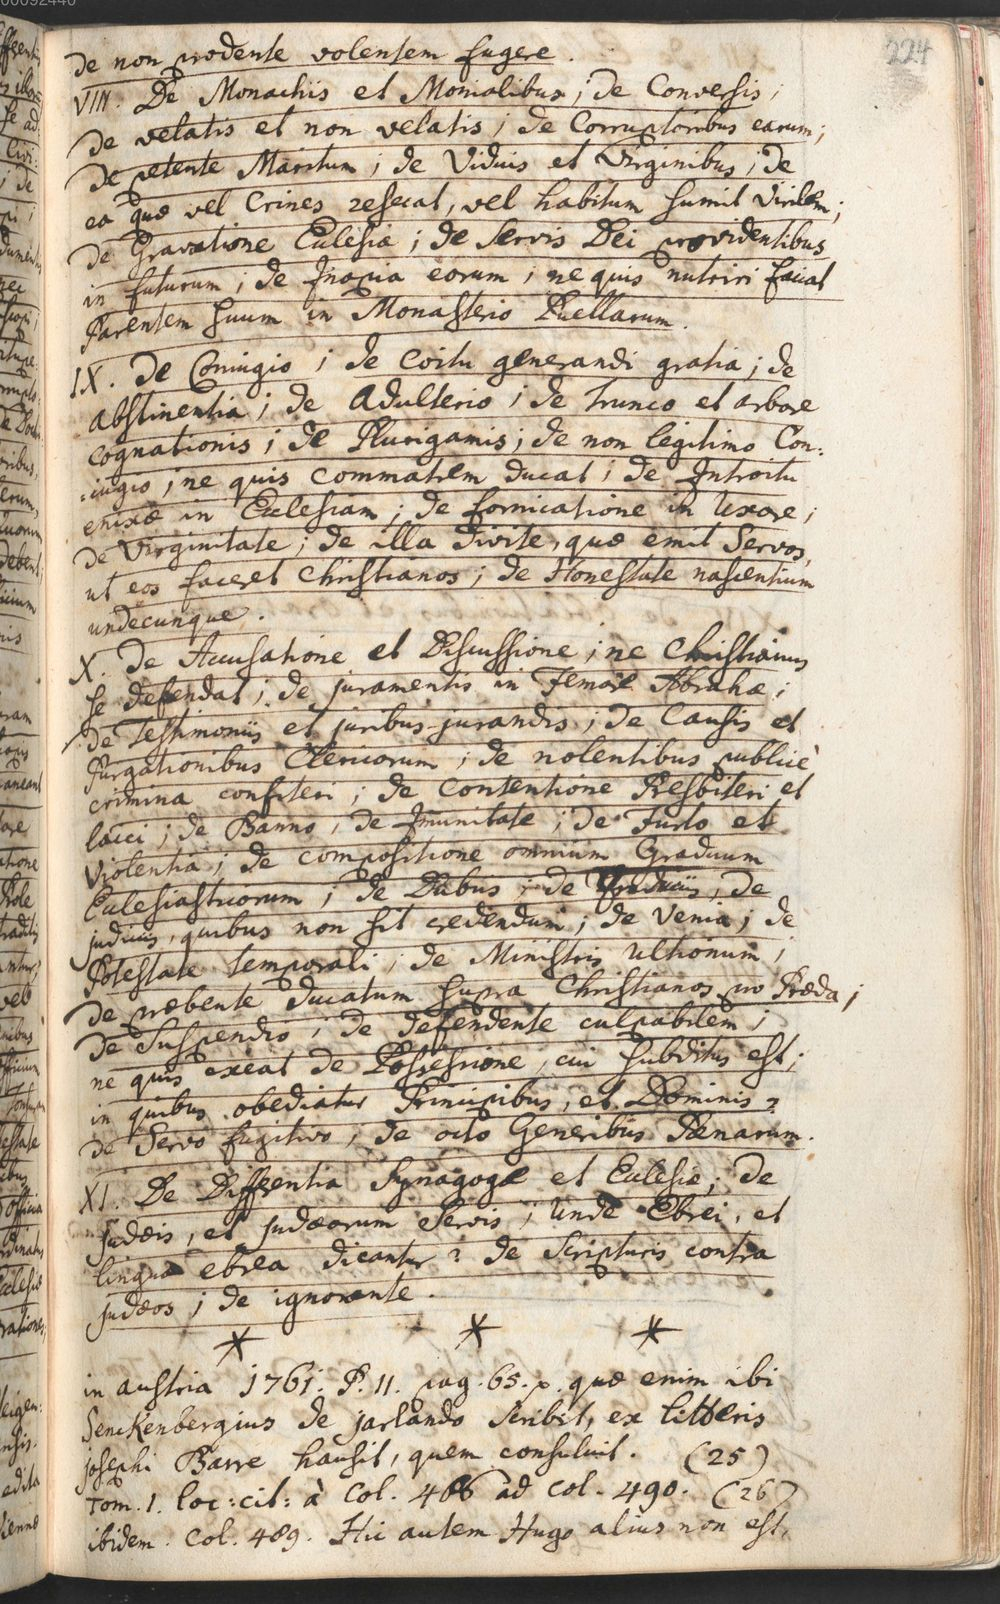 224
de non prodente volentem fugere.
VIII. De Monachis et Monialibus; de Conversis;
de velatis et non velatis; de Corruptoribus earum;
de petente Maritum; de Viduis et Virginibus; de
ea quæ vel Crines resecat, vel habitum sumit Virilem;
de Gravatione Eclesiæ; de Servis Dei providentibus
in futurum; de Inopia eorum; ne quis nutriri faciat
Parentem suum in Monasterio Puellarum.
IX. De Coniugio; de Coitu generandi gratia; de
abstinentia; de adulterio; de trunco et arbore
cognationis; de Plurigamis; de non legitimo Con:
:iugio; ne quis commatrem ducat; de Introitu
enixæ in Eclesiam; de fornicatione in Uxore;
de Virginitate; de illa divite, quæ emit Servos,
ut eos faceret Christianos; de Honestate nascentium
undecunque.
X. De Accusatione et Discussione; ne Christianus
se defendat; de juramentis in Femore Abrahæ;
de Testimoniis et juribus-jurandis; de Causis et
Purgationibus Clericorum; de nolentibus publicè
crimina confiteri; de Contentione Presbiteri et
laici; de Banno; de Imunitate; de Furto et
Violentia; de compositione omnium Graduum
Eclesiasticorum; de Dubus; de; de
judiciis, quibus non sit credendum; de Venia; de
Potestate temporali; de Ministris Ultionum;
de præbente ducatum supra Christianos pro Præda;
de Suspendio; de defendente culpabilem;
ne quis exeat de Possessione, cui subditus est;
in quibus obediatur Principibus, et Dominis?
de Servo fugitivo; de octo Generibus Pænarum.
XI. De Differentia Synagogæ et Eclesiæ; de
judæis, et judæorum Servis; Unde Ebrei, et
lingua ebrea dicantur? de Scripturis contra
judæos; de ignorante.
* * *
in austria 1761. P. II. pag. 65. p. quæ enim ibi
Senckenbergius de jarlando scribit, ex litteris
josephi Barre hausit, quem consuluit. (25)
Tom. 1. loc: cit: à Col. 486 ad col. 490. (26)
ibidem. Col. 489. Hic autem Hugo alius non est,